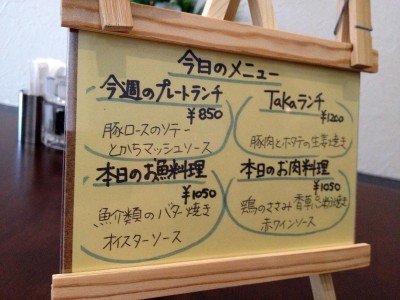 今日のメニュー
今週のプレートランチ
¥850
豚ロースのソテー
とかちマッシュソース
Takaランチ
¥1200
豚肉とホタテの生姜焼き
本日のお魚料理
¥1050
魚介類のバター焼き
オイスターソース
本日のお肉料理
¥1050
鶏のささみ 香草
赤ワインソース